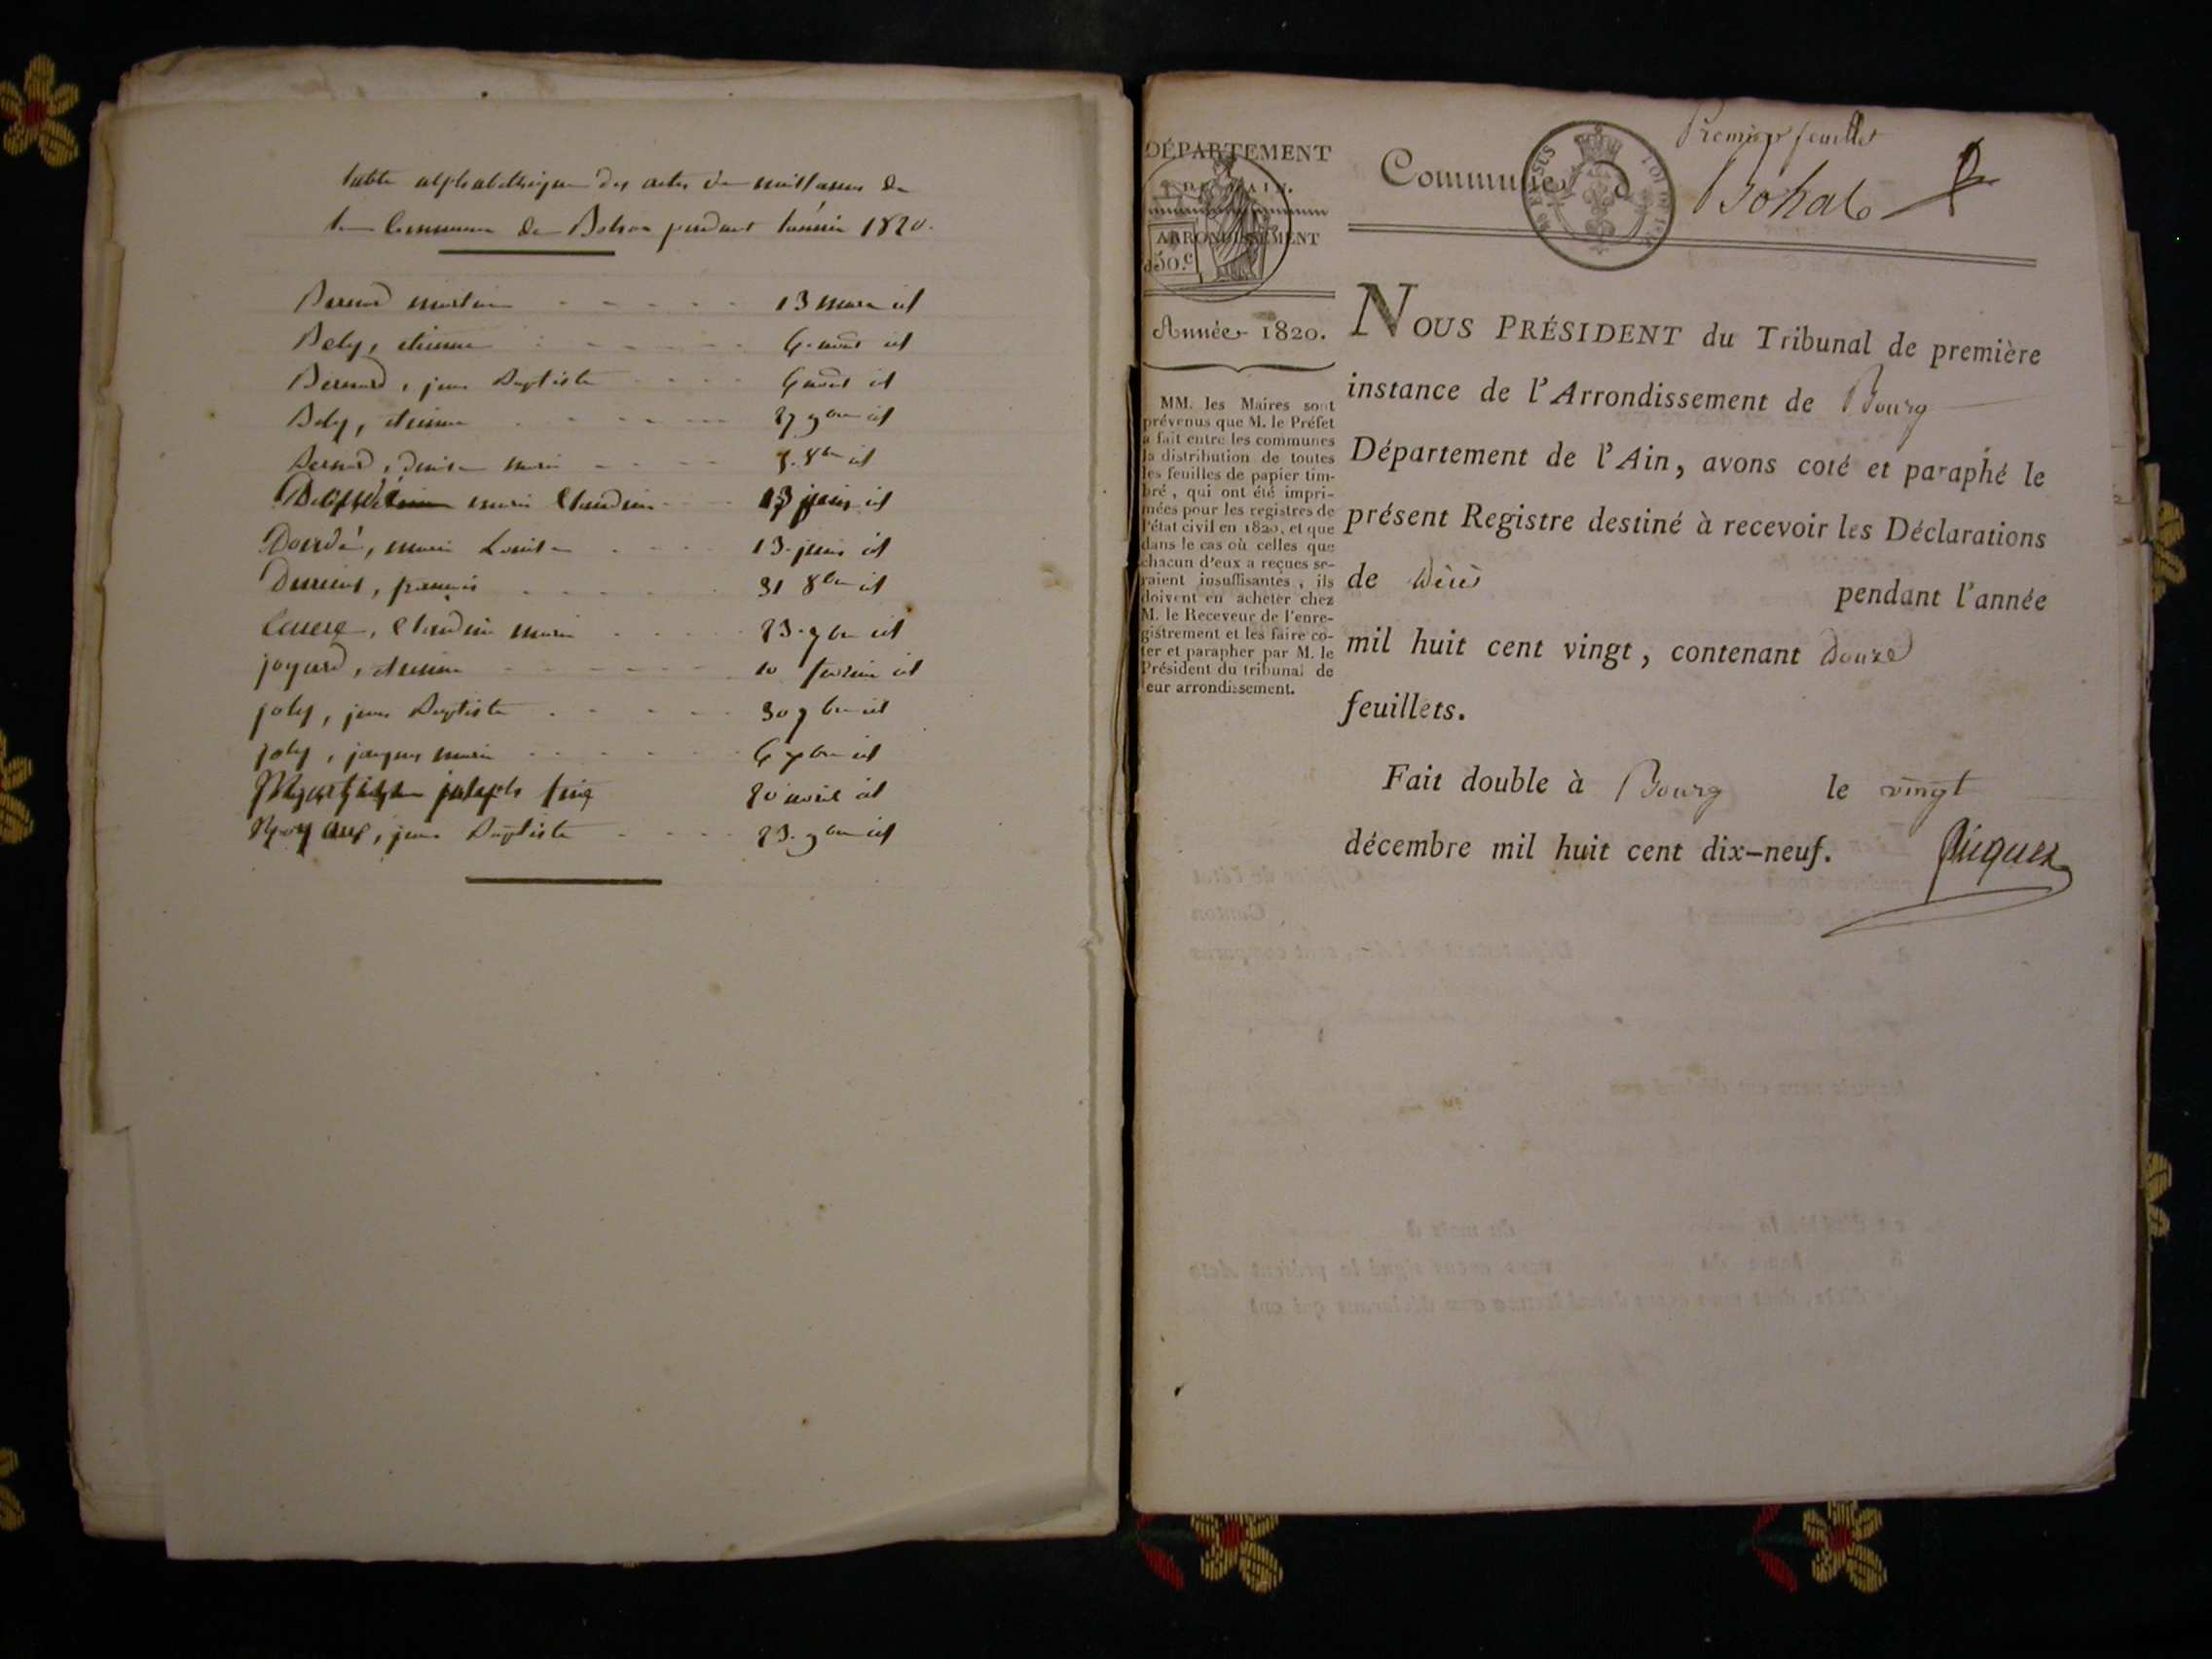 table alphabetique des actes de naissances de
la Commune de Bohas pendant l'année 1820.
Bernard martin - - - - - 13 mars id
Bely, etienne - - - - - 6 août id
Bernard, jean Baptiste - - - - 6 août id
Bely, etienne - - - - - 27 9bre id
Bernard, denise marie - - - - 8bre id
marie Claudine - - 13 juin id
marie Louise - - - 13 juin id
françois - - - - - 31 8bre id
Claudine marie - - - - 23 9bre id
joyard, etienne - - - - - 10 fevrier id
joly, jean Baptiste - - - - - 30 9bre id
joly, jacques marie - - - - - 6 7bre id
joseph 20 avril id
jean Baptiste - - - - 23 9bre id
Premier feuillet
DÉPARTEMENT
DE L'AIN.
ARRONDISSEMENT
de
50.c
Commune d Bohas
Année 1820.
MM. les Maires sont
prévenus que M. le Préfet
a fait entre les communes
la distribution de toutes
les feuilles de papier tim-
bré, qui ont été impri-
mées pour les registres de
l'état civil en 1820, et que
dans le cas où celles que
chacun d'eux a reçues se-
raient insuffisantes, ils
doivent en acheter chez
M. le Receveur de l'enre-
gistrement et les faire co-
ter et parapher par M. le
Président du tribunal de
leur arrondissement.
NOUS PRÉSIDENT du Tribunal de première
instance de l'Arrondissement de Bourg
Département de l'Ain, avons coté et paraphé le
présent Registre destiné à recevoir les Déclarations
de décès pendant l'année
mil huit cent vingt, contenant douze
feuillets.
Fait double à Bourg le vingt
décembre mil huit cent dix-neuf.